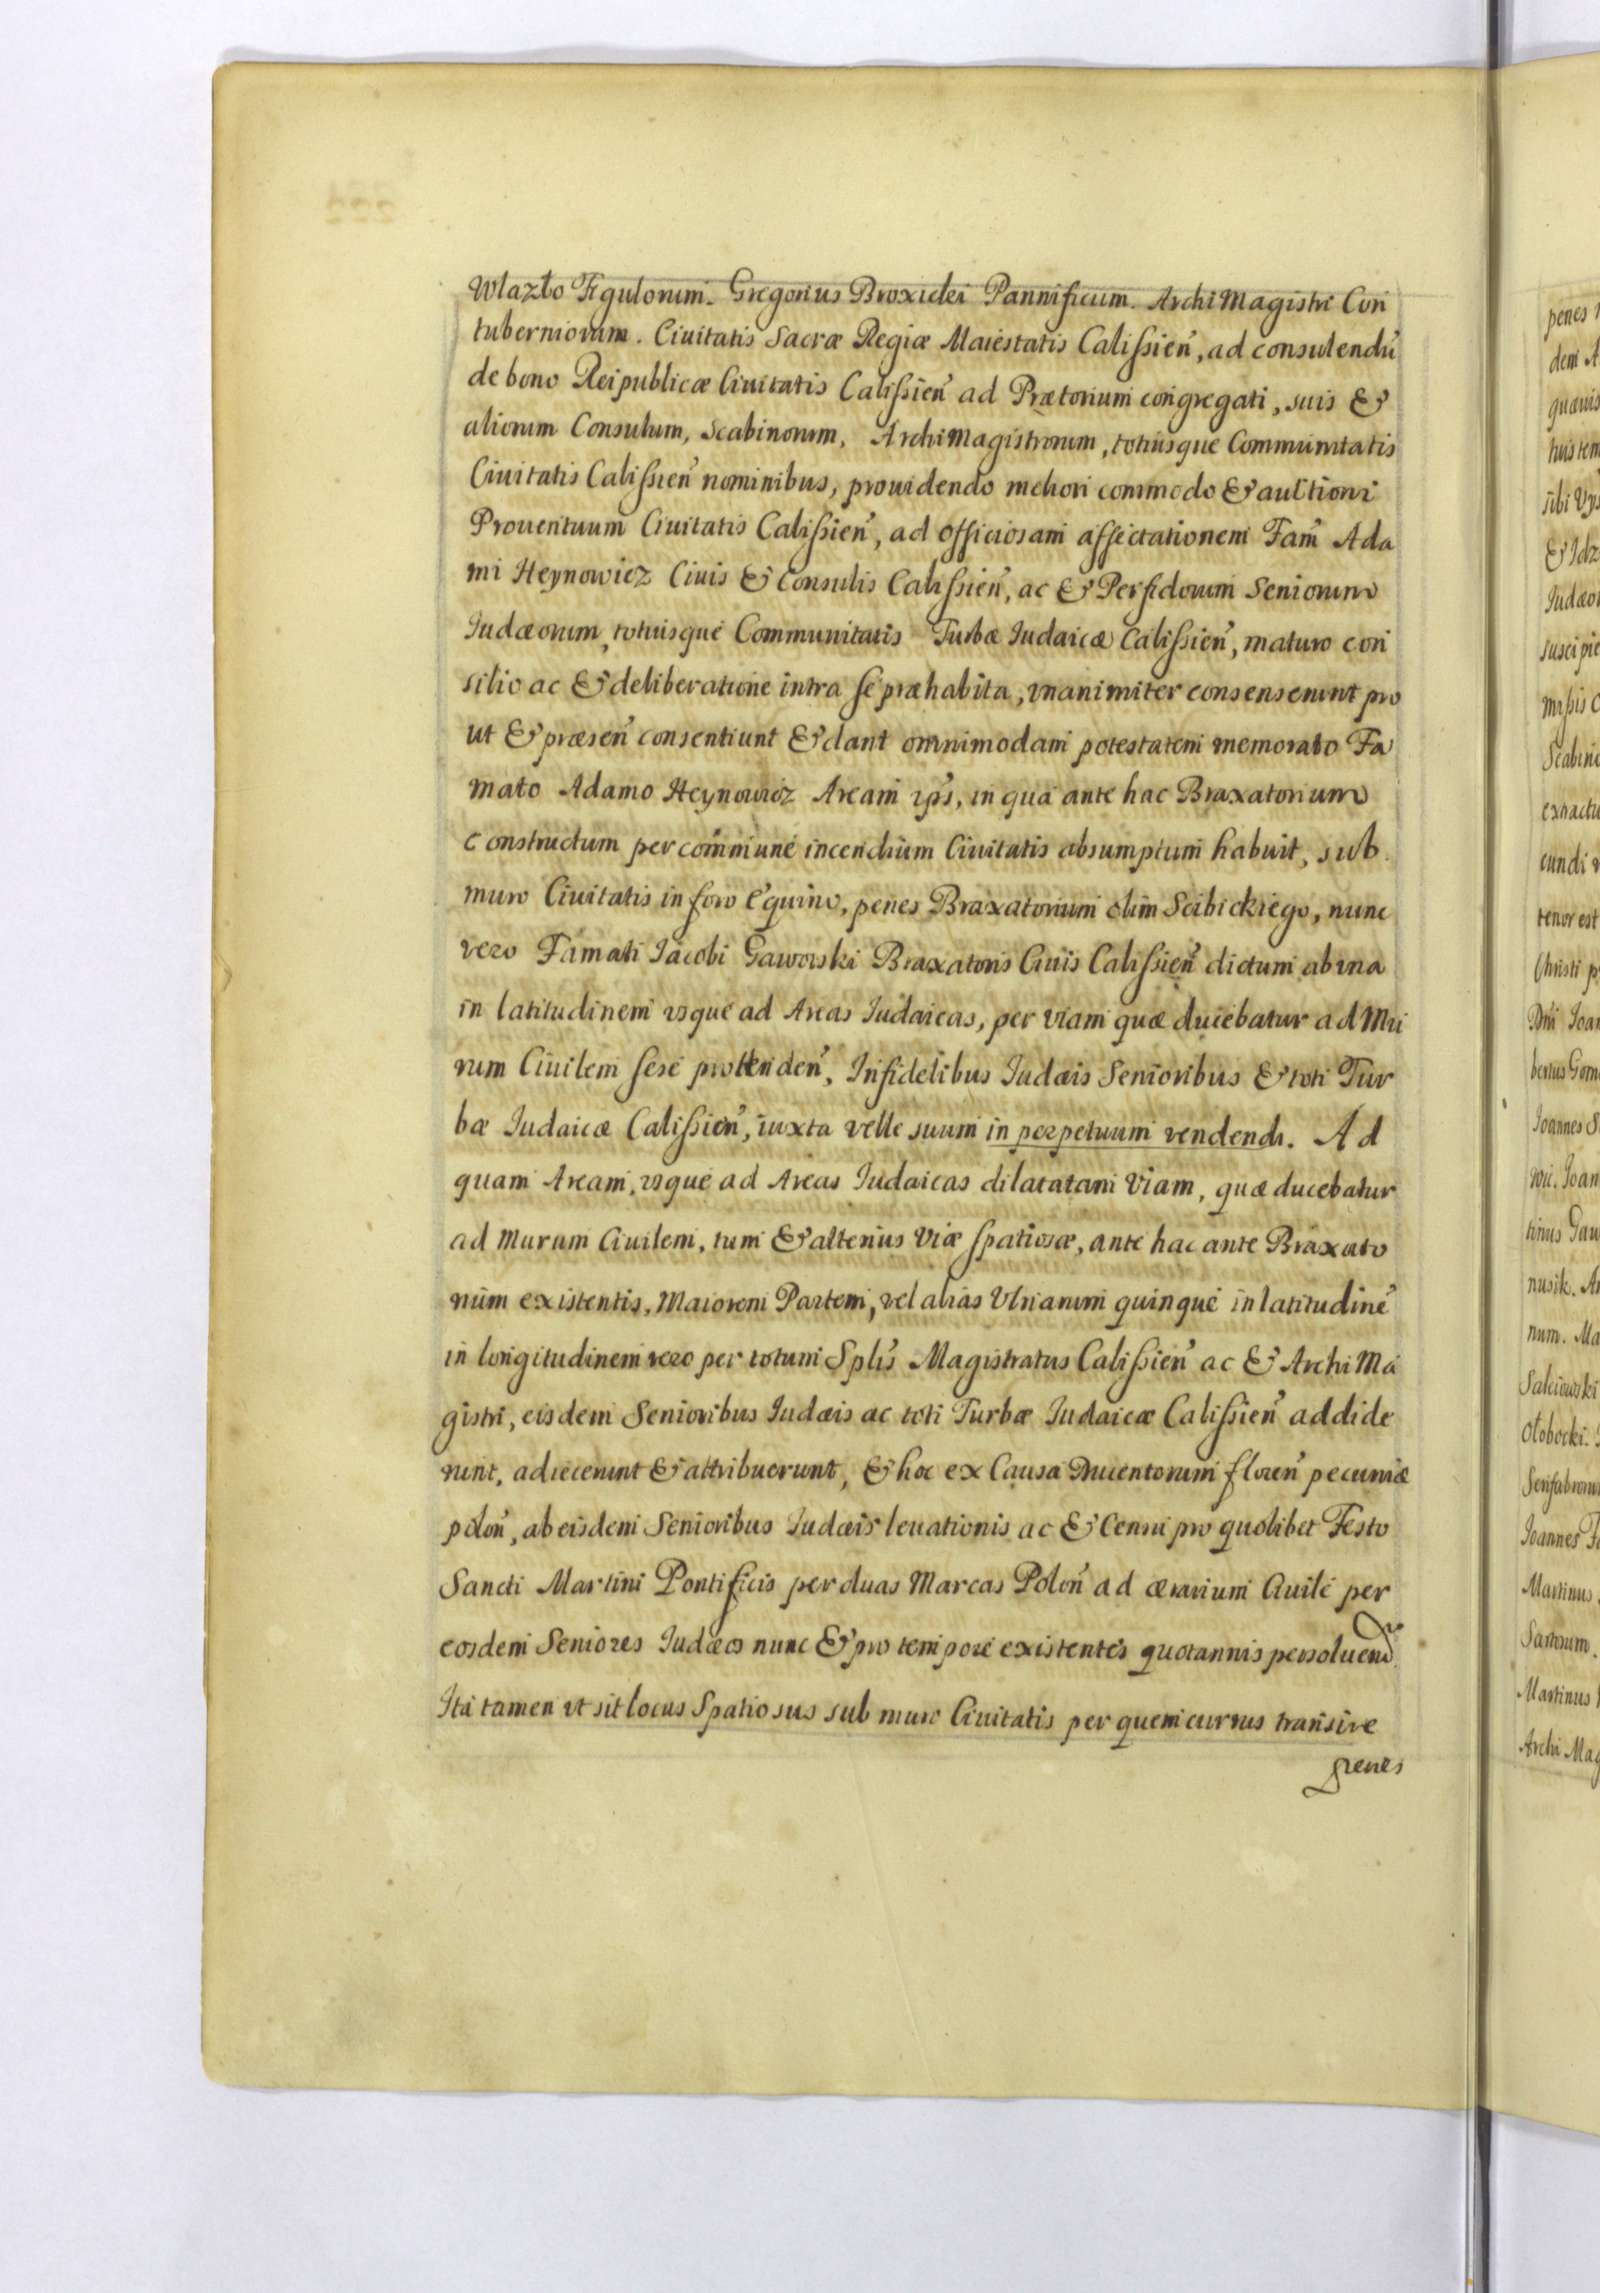 Wlazło Figulorum. Gregorius Broxidei Pannificum. ArchiMagistri Con
tuberniorum. Ciuitatis Sacræ Regiæ Maiestatis Calissien̄, ad consulendū
de bono Reipublicæ Ciuitatis Calissien̄ ad Prætorium congregati, suis &
aliorum Consulum, Scabinorum, ArchiMagistrorum, totiusque Communitatis
Ciuitatis Calissien̄ nominibus, prouidendo meliori commodo & auctioni
Prouentuum Ciuitatis Calissien̄, ad officiosam affectationem Fam̄ Ada
mi Heynowicz Ciuis & Consulis Calissien̄, ac & Perfidorum Seniorum
Iudæorum, totiusque Communitatis Turbæ Iudaicæ Calissien̄, maturo con
silio ac & deliberatione intra se præhabita, vnanimiter consenserunt pro
ut & præsen̄ consentiunt & dant omnimodam potestatem memorato Fa
mato Adamo Heynowicz Aream ips̄, in qua ante hac Braxatorium
constructum per commune incendium Ciuitatis absumptum habuit, sub
muro Ciuitatis in foro Equino, penes Braxatorium olim Scibickiego, nunc
vero Famati Iacobi Gaworski Braxatoris Ciuis Calissien̄ dictum ab vna
in latitudinem vsque ad Areas Iudaicas, per viam quæ ducebatur ad Mu
rum Ciuilem sese protenden̄, Infidelibus Iudæis Senioribus & toti Tur
bæ Iudaicæ Calissien̄, iuxta velle suum in perpetuum vendendi. Ad
quam Aream, vsque ad Areas Iudaicas dilatatam Viam, quæ ducebatur
ad Murum Ciuilem, tum & alterius Viæ spatiosæ, ante hac ante Braxato
rium existentis, Maiorem Partem, vel alias Vlnarum quinque in latitudinē
in longitudinem vero per totum Spl̄is Magistratus Calissien̄ ac & ArchiMa
gistri, eisdem Senioribus Iudæis ac toti Turbæ Iudaicæ Calissien̄ addide
runt, adiecerunt & attribuerunt, & hoc ex Causa Ducentorum floren̄ pecuniæ
polon̄, ab eisdem Senioribus Iudæis leuationis ac & Census pro quolibet Festo
Sancti Martini Pontificis per duas Marcas Polon̄ ad ærarium Ciuile per
eosdem Seniores Iudæos nunc & pro tempore existentes quotannis persoluend̄.
Ita tamen vt sit locus Spatiosus sub muro Ciuitatis per quem currus transire
penes